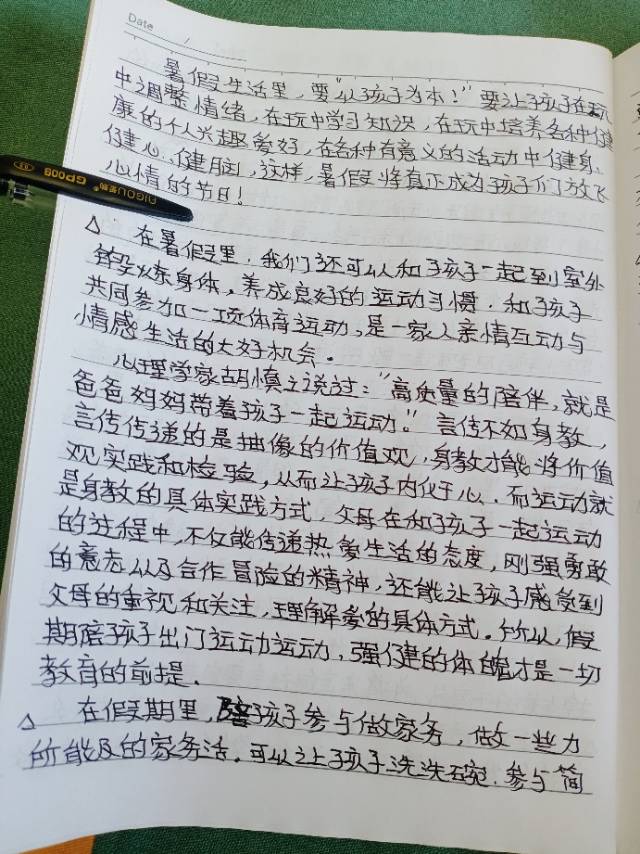 Date
暑假生活里，要"以孩子为本！"要让孩子在玩
中调整情绪，在玩中学习知识，在玩中培养各种健
康的个人兴趣爱好，在各种有意义的活动中健身、
健心、健脑，这样，暑假将真正成为孩子们放飞
心情的节日！
GP008
△ 在暑假里，我们还可以和孩子一起到室外
锻炼身体，养成良好的运动习惯。和孩子
共同参加一项体育运动，是一家人亲情互动与
情感生活的大好机会。
心理学家胡慎之说过："高质量的陪伴，就是
爸爸妈妈带着孩子一起运动。"言传不如身教，
言传传递的是抽像的价值观，身教才能将价值
观实践和检验，从而让孩子内化于心。而运动就
是身教的具体实践方式，父母在和孩子一起运动
的过程中，不仅能传递热爱生活的态度，刚强勇敢
的意志以及合作冒险的精神，还能让孩子感受到
父母的重视和关注，理解爱的具体方式。所以，假
期陪孩子出门运动运动，强健的体魄才是一切
教育的前提。
△ 在假期里，陪孩子参与做家务，做一些力
所能及的家务活。可以让孩子洗洗碗，参与简